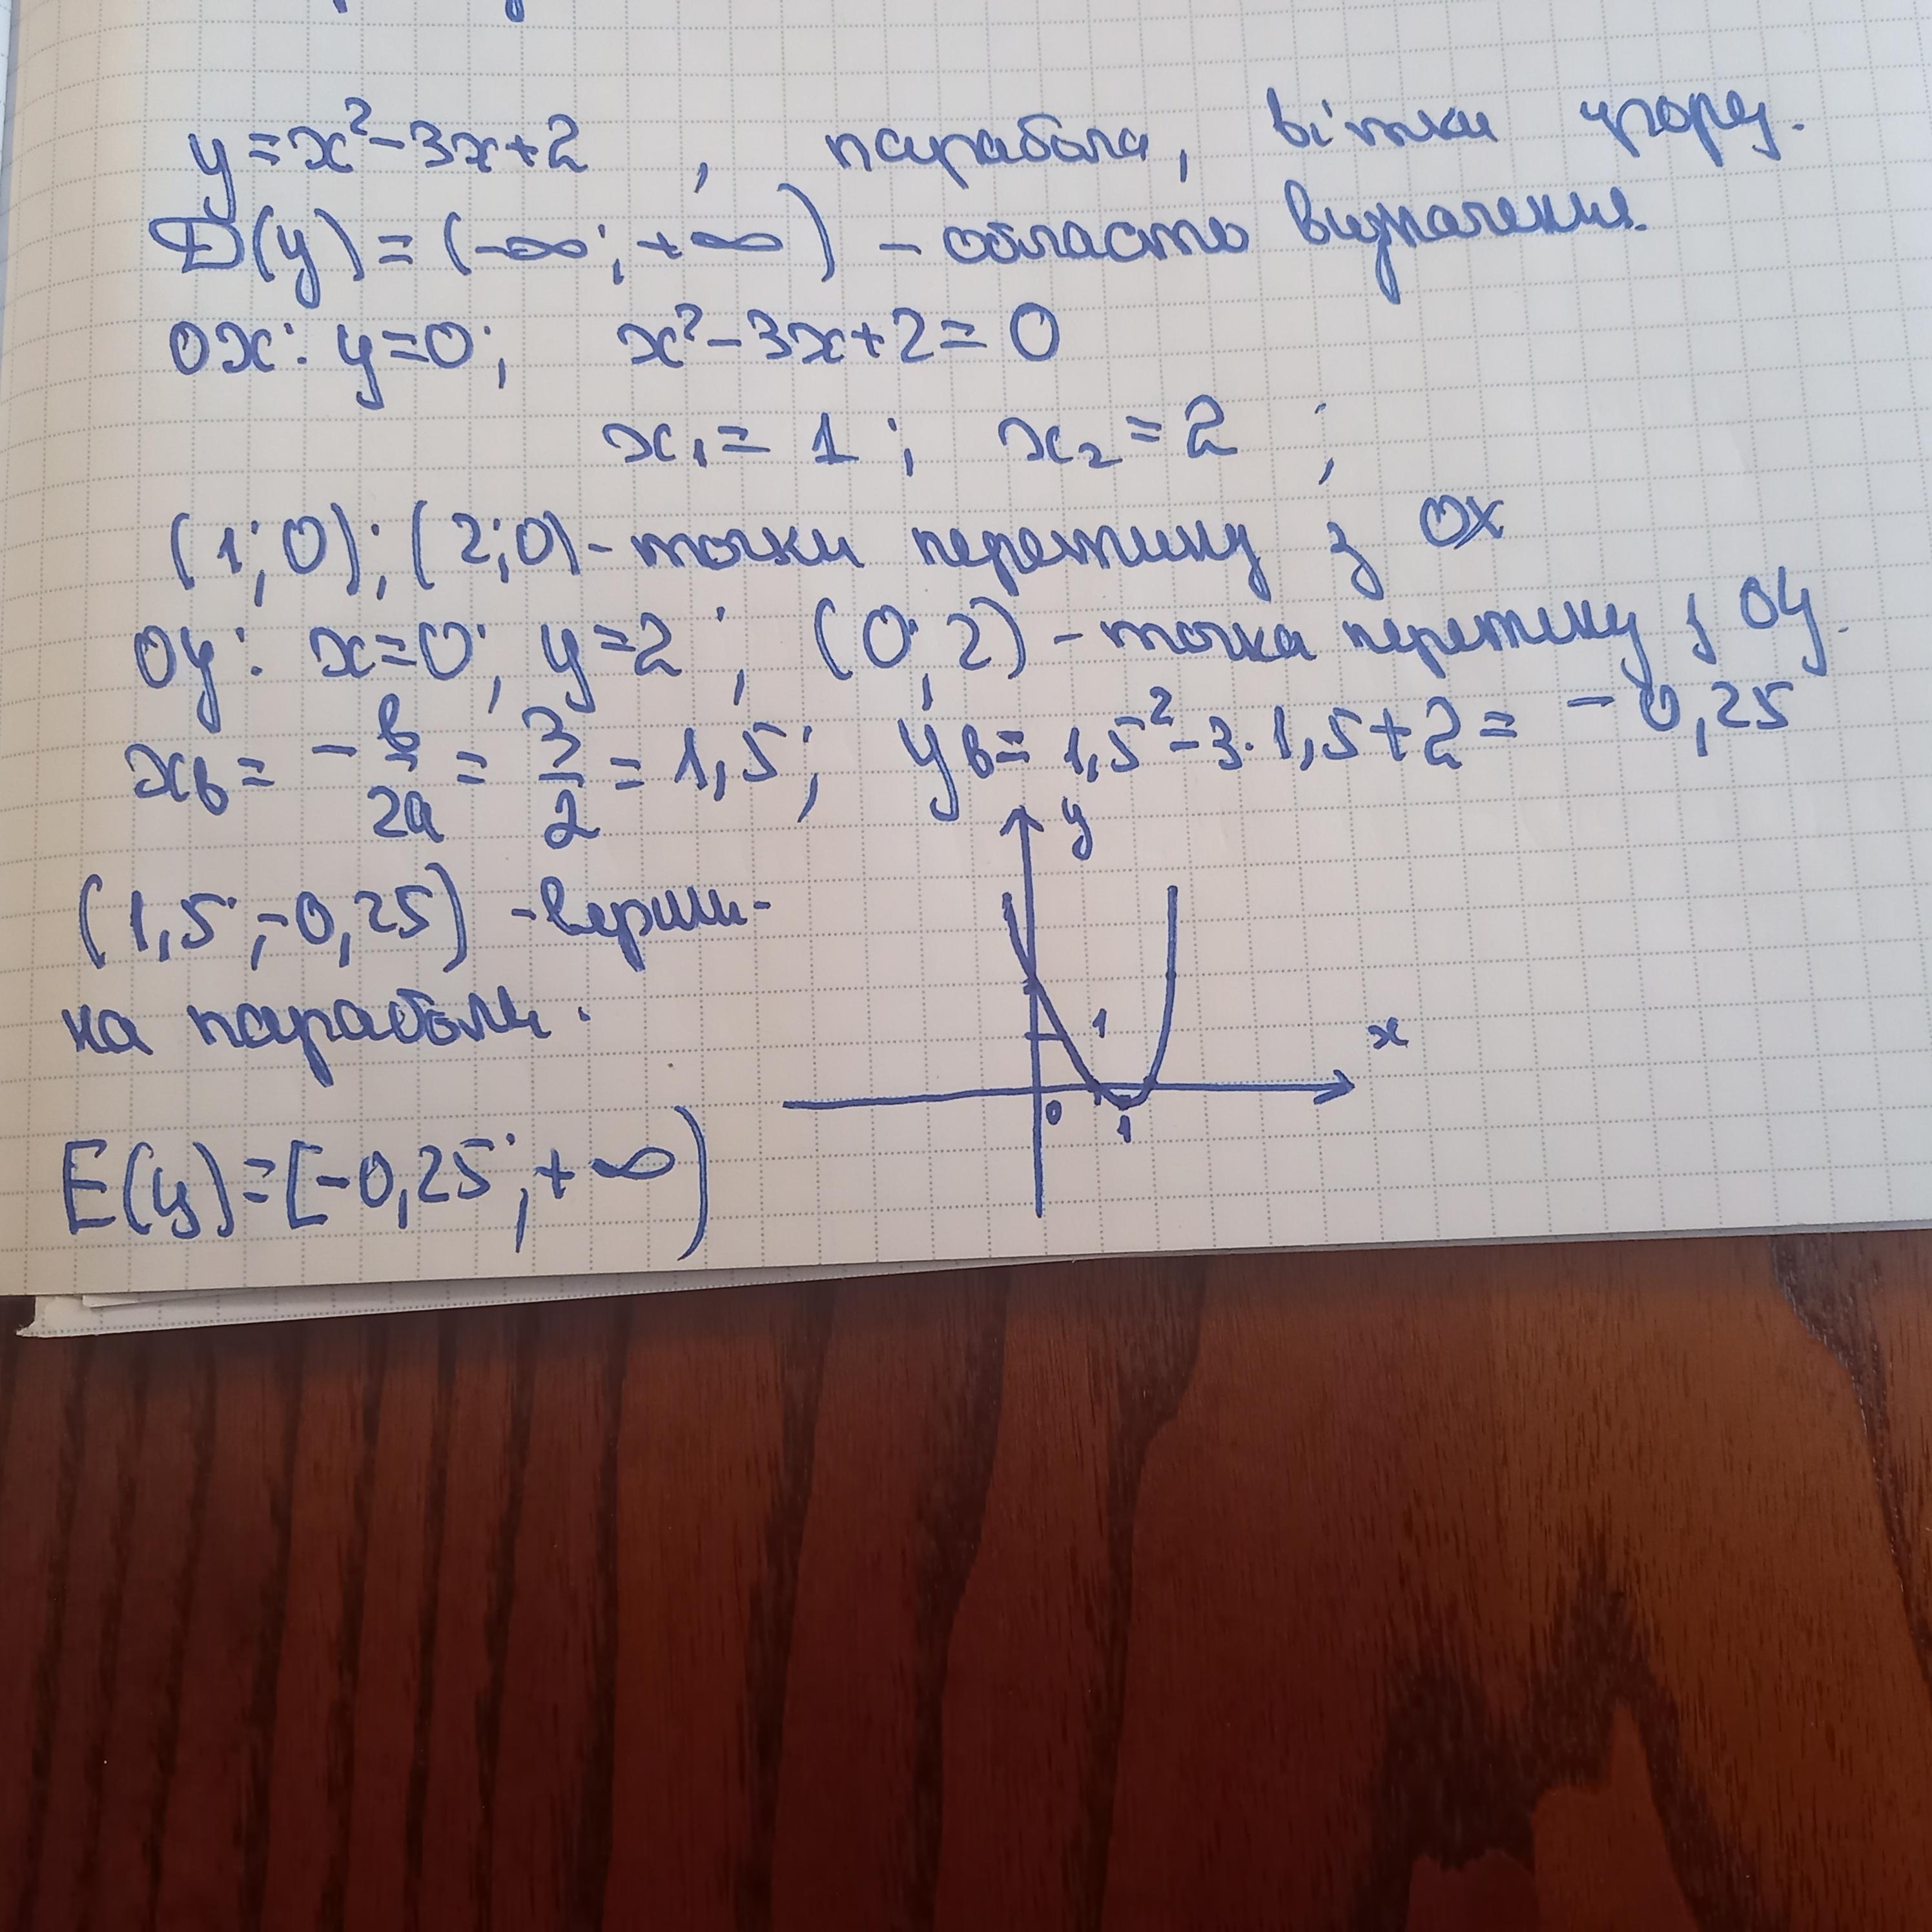 y = x² - 3x + 2 , парабола, вітки угору.
D(y) = (-∞; +∞) - область визначення.
Ox: y=0; x² - 3x + 2 = 0
x₁ = 1 ; x₂ = 2 ;
(1; 0); (2; 0) - точки перетину з OX
Oy: x=0; y=2 ; (0; 2) - точка перетину з Oy.
xв = -в/2a = 3/2 = 1,5; yв = 1,5² - 3·1,5 + 2 = -0,25
(1,5; -0,25) - верши-
на параболи.
E(y) = [-0,25; +∞)
y
1
x
0
1